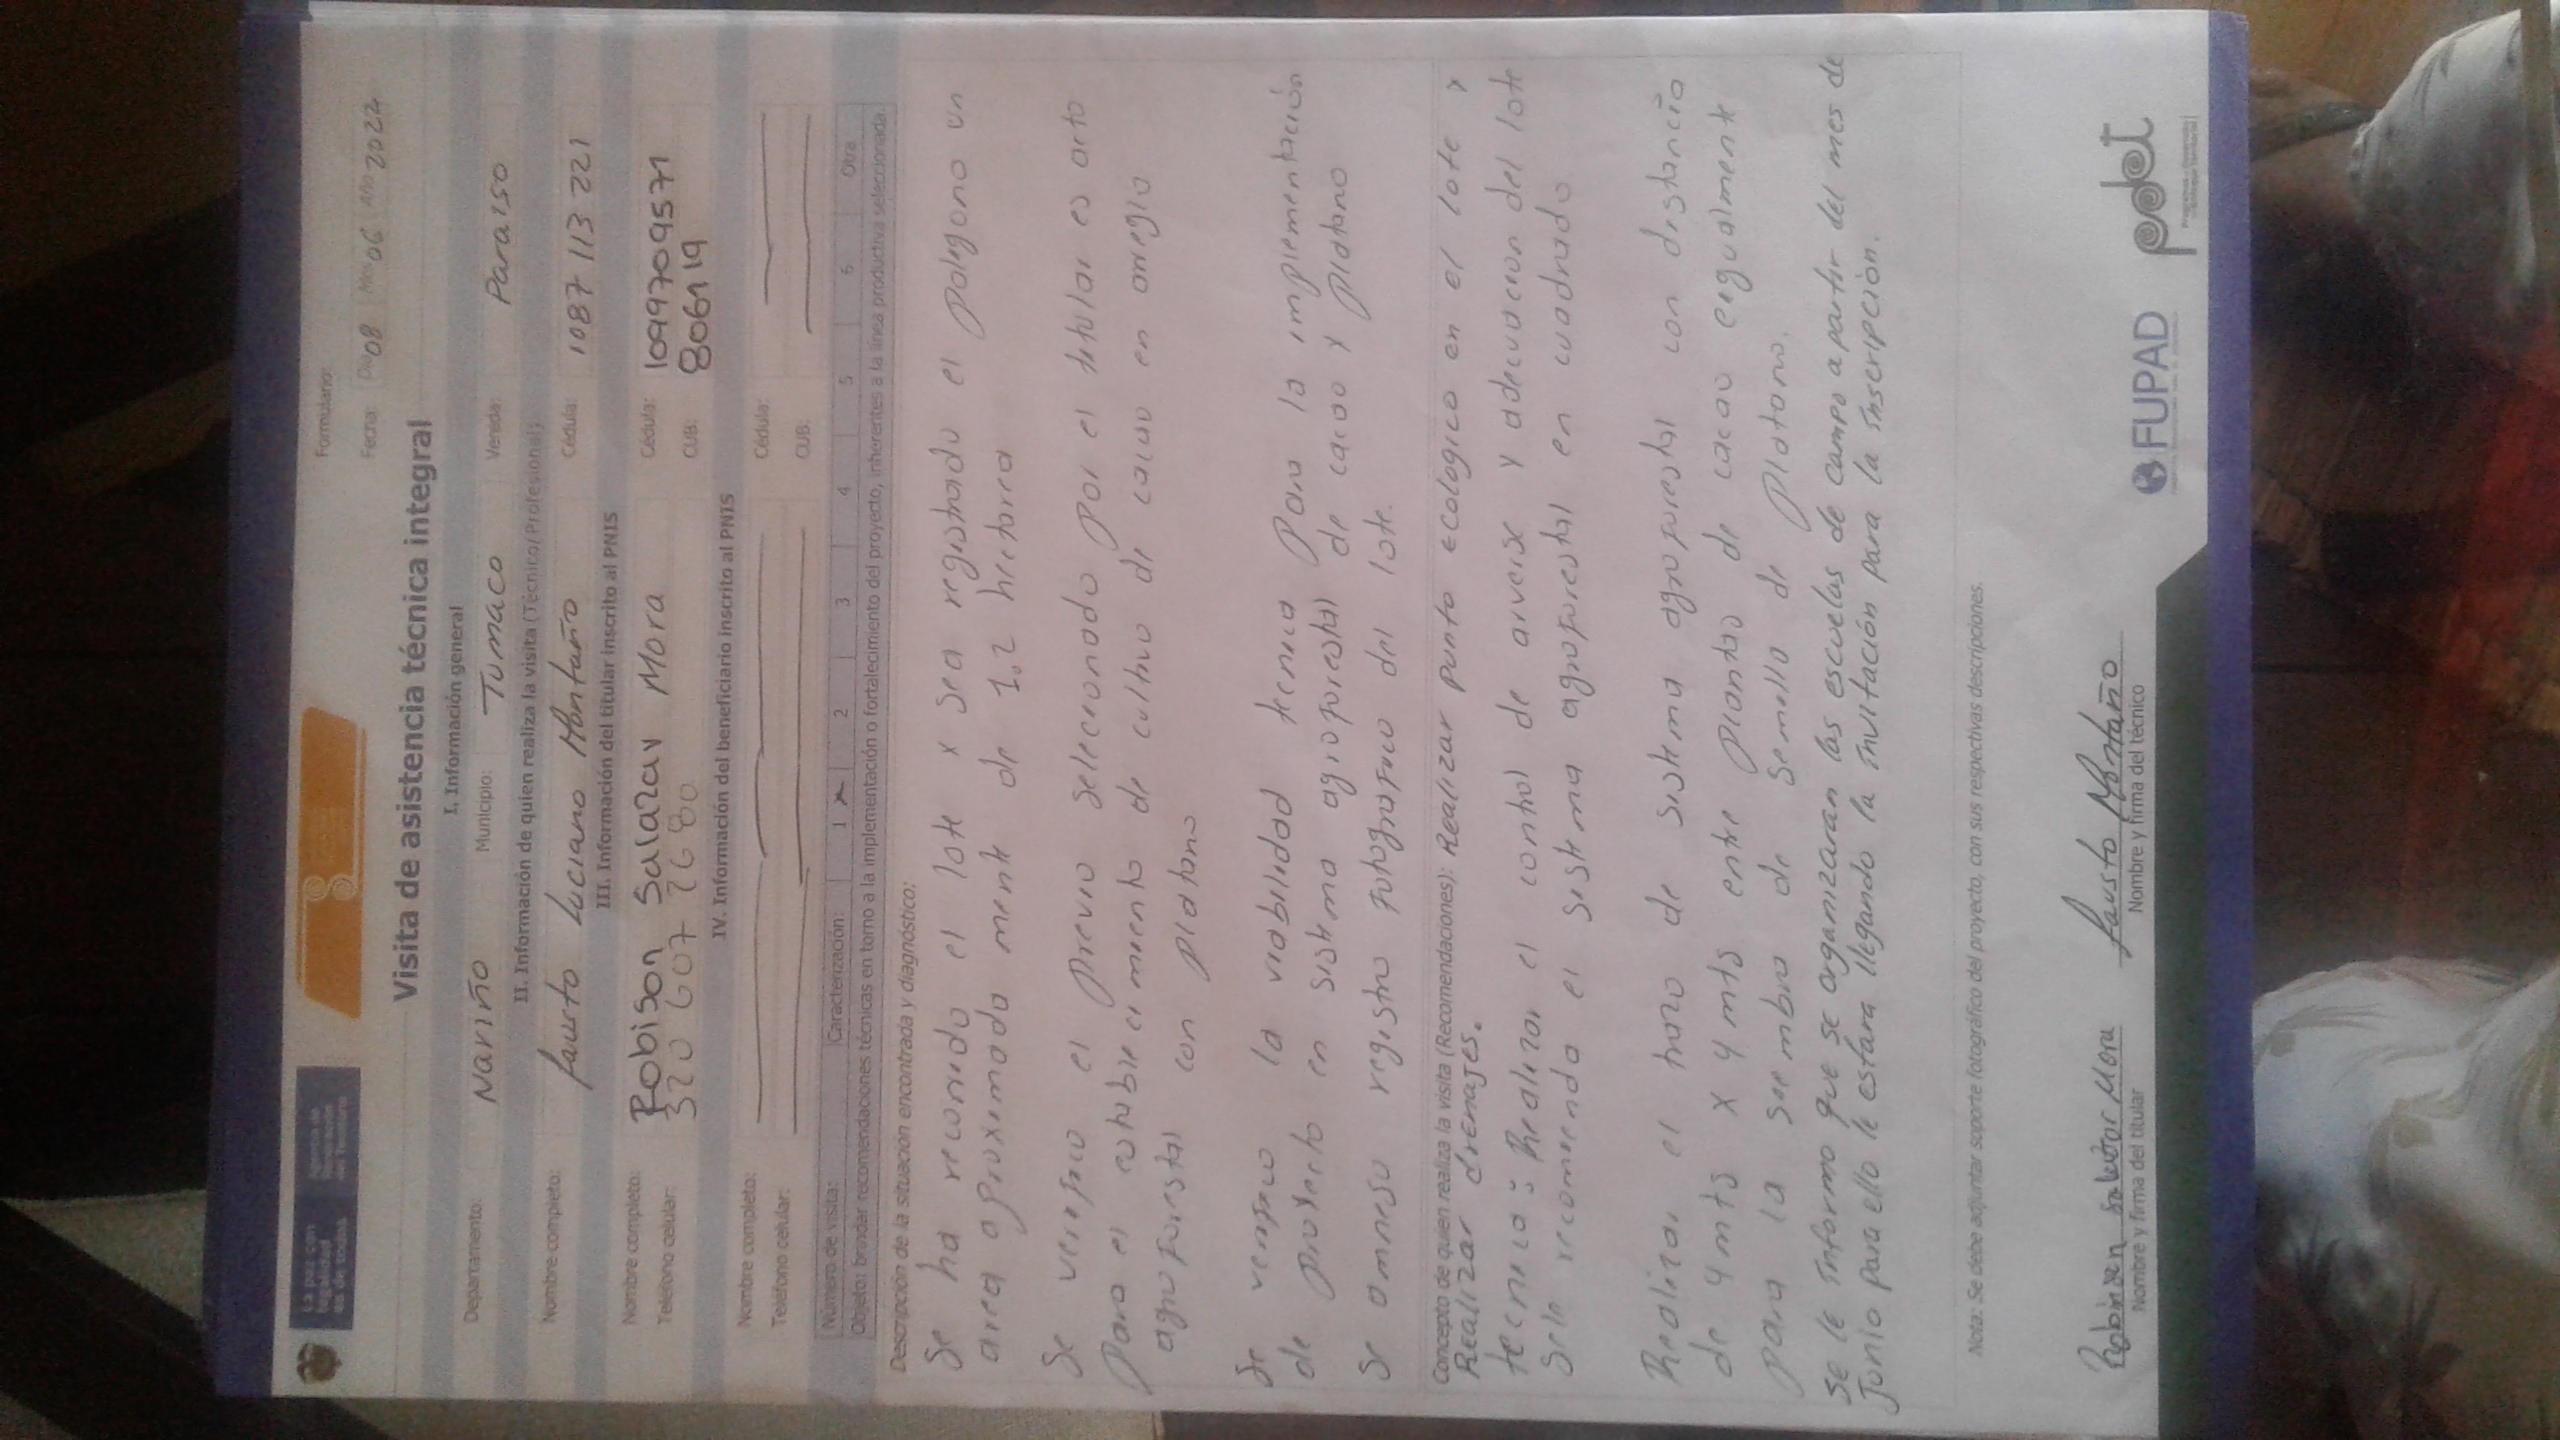 La paz con
legalidad
es de todos
Agencia de
Renovación
del Territorio
Formulario:
Fecha: Día 08 Mes 06 Año 2022
Visita de asistencia técnica integral
I. Información general
Departamento: Nariño Municipio: Tumaco Vereda: Paraiso
II. Información de quien realiza la visita (Técnico/Profesional)
Nombre completo: Fausto Luciano Montaño Cédula: 1087 113 221
III. Información del titular inscrito al PNIS
Nombre completo: Robison Salazar Mora Cédula: 1099709571
Teléfono celular: 320 607 7680 CUB: 806119
IV. Información del beneficiario inscrito al PNIS
Nombre completo: Cédula:
Teléfono celular: CUB:
Número de visita: Caracterización: 1 x 2 3 4 5 6 Otra
Objeto: brindar recomendaciones técnicas en torno a la implementación o fortalecimiento del proyecto, inherentes a la línea productiva seleccionada.
Descripción de la situación encontrada y diagnóstico:
Se ha recorrido el lote x sea registrado el poligono un
area aproximada mente de 1.2 hectarea
Se verifico el previo seleccionado por el titular es acto
para el establecimiento de cultivo de cacao en arreglo
agroforestal con platano
Se verifico la viabilidad tecnica para la implementación
de proyecto en sistema agroforestal de cacao y platano
Se annexo registro fotografico del lote.
Concepto de quien realiza la visita (Recomendaciones): Realizar punto ecologico en el lote y
Realizar drenajes.
tecnica: Realizar el control de arverse y adecuacion del lote
Sele recomienda el sistema agroforestal en cuadrado
Realizar el trazo de sistema agroforestal con distancia
de 4 mts x 4 mts entre plantas de cacao engualmente
para la siembra de semella de platano.
Se le informo que se organizaran las escuelas de campo a partir del mes de
Junio para ello le estara llegando la invitación para la inscripción.
Nota: Se debe adjuntar soporte fotográfico del proyecto, con sus respectivas descripciones.
Robinson Salazar Mora Fausto Montaño
Nombre y firma del titular Nombre y firma del técnico
FUPAD
pdet